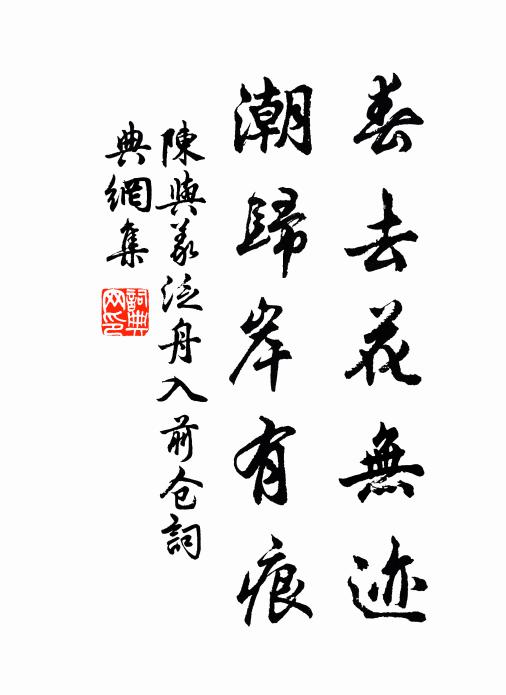 春去花無迹
潮歸岸有痕
陳與義泛舟入前仓詞
典網集
詞典
网印